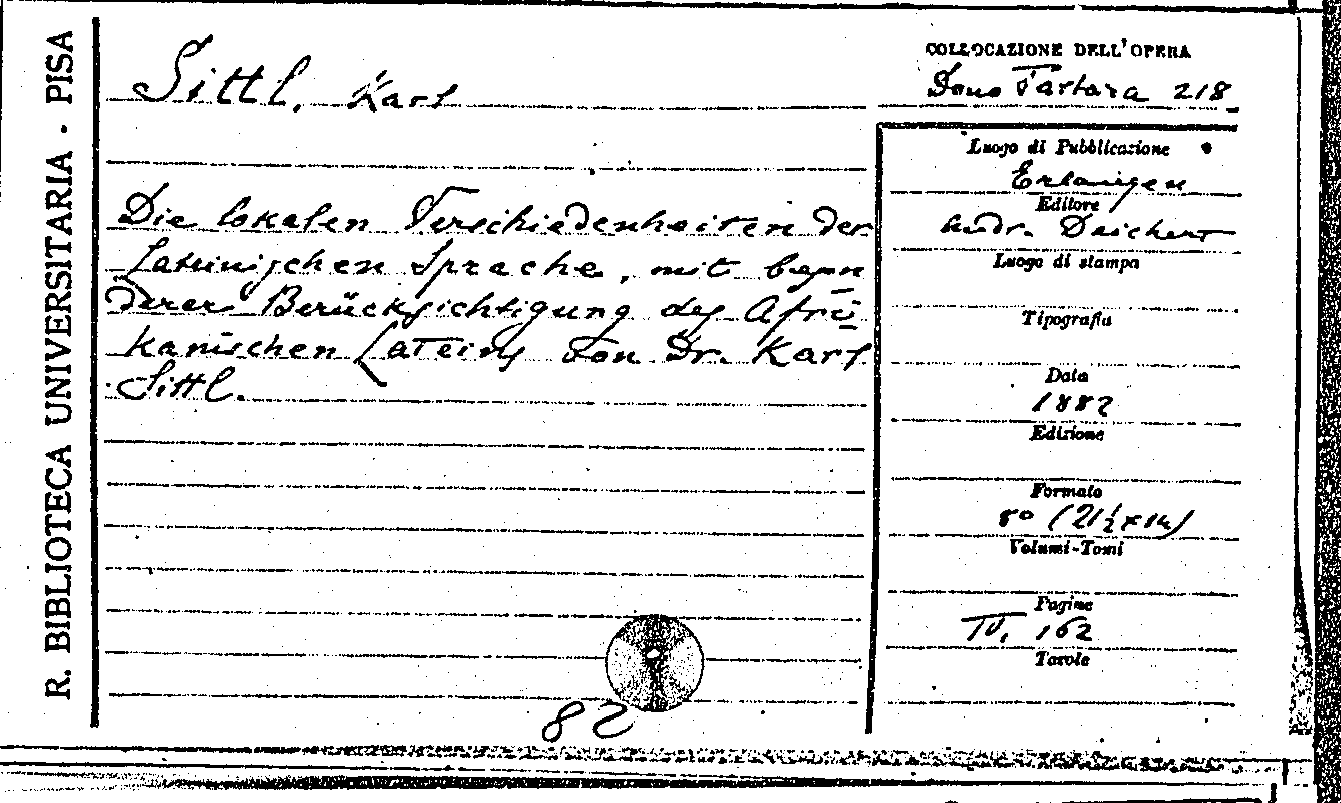 R. BIBLIOTECA UNIVERSITARIA - PISA
Sittl, Karl
Die lokalen Verschiedenheiten der
Lateinischen Sprache, mit beson
derer Berücksichtigung des Afri-
kanischen Lateins von Dr. Karl
Sittl.
82
COLLOCAZIONE DELL'OPERA
Dono Tartara 218
Luogo di Pubblicazione
Erlangen
Editore
Andr. Deichert
Luogo di stampa
Tipografia
Data
1882
Edizione
Formato
8° (21½×14)
Volumi-Tomi
Pagine
IV, 162
Tavole